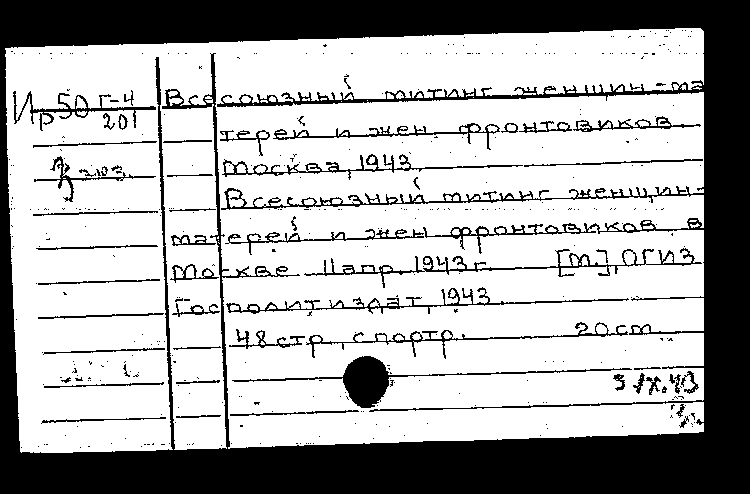 Ир50 Г-4 Всесоюзный митинг женщин-ма
201
терей и жен фронтовиков.
Москва, 1943.
Всесоюзный митинг женщин-
матерей и жен фронтовиков в
Москве 11 апр. 1943 г. [М.], ОГИЗ
Госполитиздат, 1943.
48 стр., с портр. 20 см.